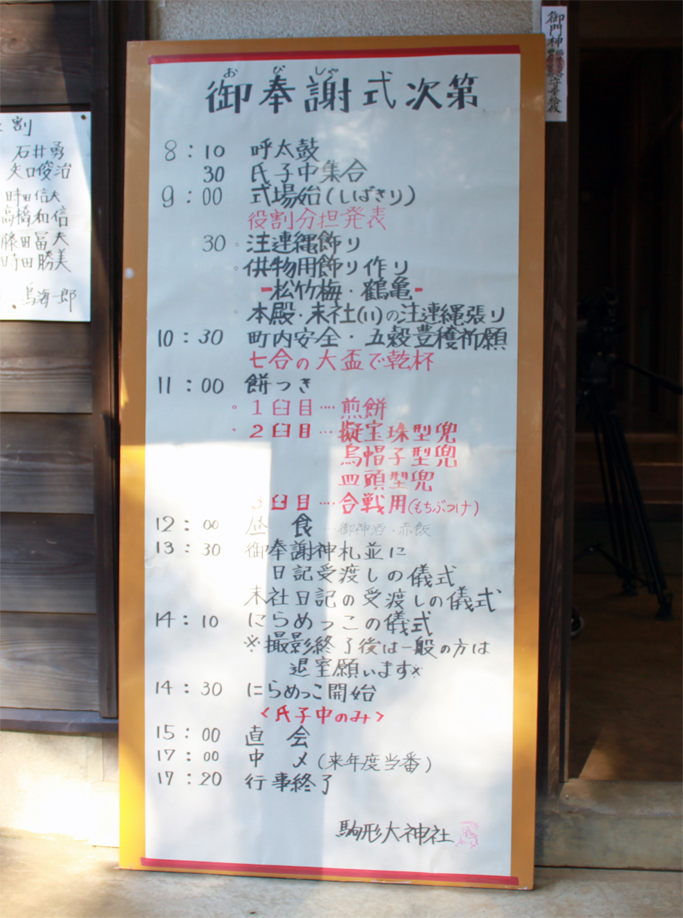 おびしゃ
御奉謝式次第
8:10 呼太鼓
30 氏子中集合
9:00 式場始(しばきり)
役割分担発表
30 注連縄飾り
・供物用飾り作り
松竹梅・鶴亀
・本殿・末社(11)の注連縄張り
10:30 町内安全・五穀豊穣祈願
七合の大盃で乾杯
11:00 餅つき
・1臼目‥‥煎餅
・2臼目‥‥擬宝珠型兜
烏帽子型兜
皿頭型兜
3臼目‥‥合戦用(もちぶつけ)
12:00 昼 食 御神酒・赤飯
13:30 御奉謝神札並に
日記受渡しの儀式
末社日記の受渡しの儀式
14:10 にらめっこの儀式
※撮影終了後は一般の方は
退室願います※
14:30 にらめっこ開始
<氏子中のみ>
15:00 直 会
17:00 中 〆(来年度当番)
17:20 行事終了
駒形大神社
割
石井勇
矢口俊治
時田信夫
高橋和信
藤田冨夫
時田勝美
鳥海一郎
御門神